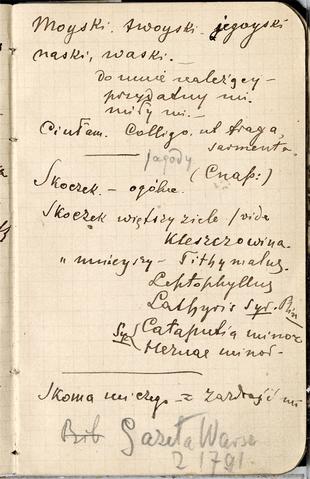 Moyski. twoyski. jegoyski
naski, waski. —
do mnie należący —
przydatny mi.
miły mi. —
Ciułam. Colligo. ut fraga,
sarmenta
jagody
(Cnap:)
Skoczek. — ogólne.
Skoczek większy ziele / vide
Kleszczowina.
" mnieyszy — Tithymalus.
Leptophyllus
Lathyris Syr.
Syr. Cataputia minor
minor
Skoma niczego =
Bib Gazeta Warsz
2 1791.